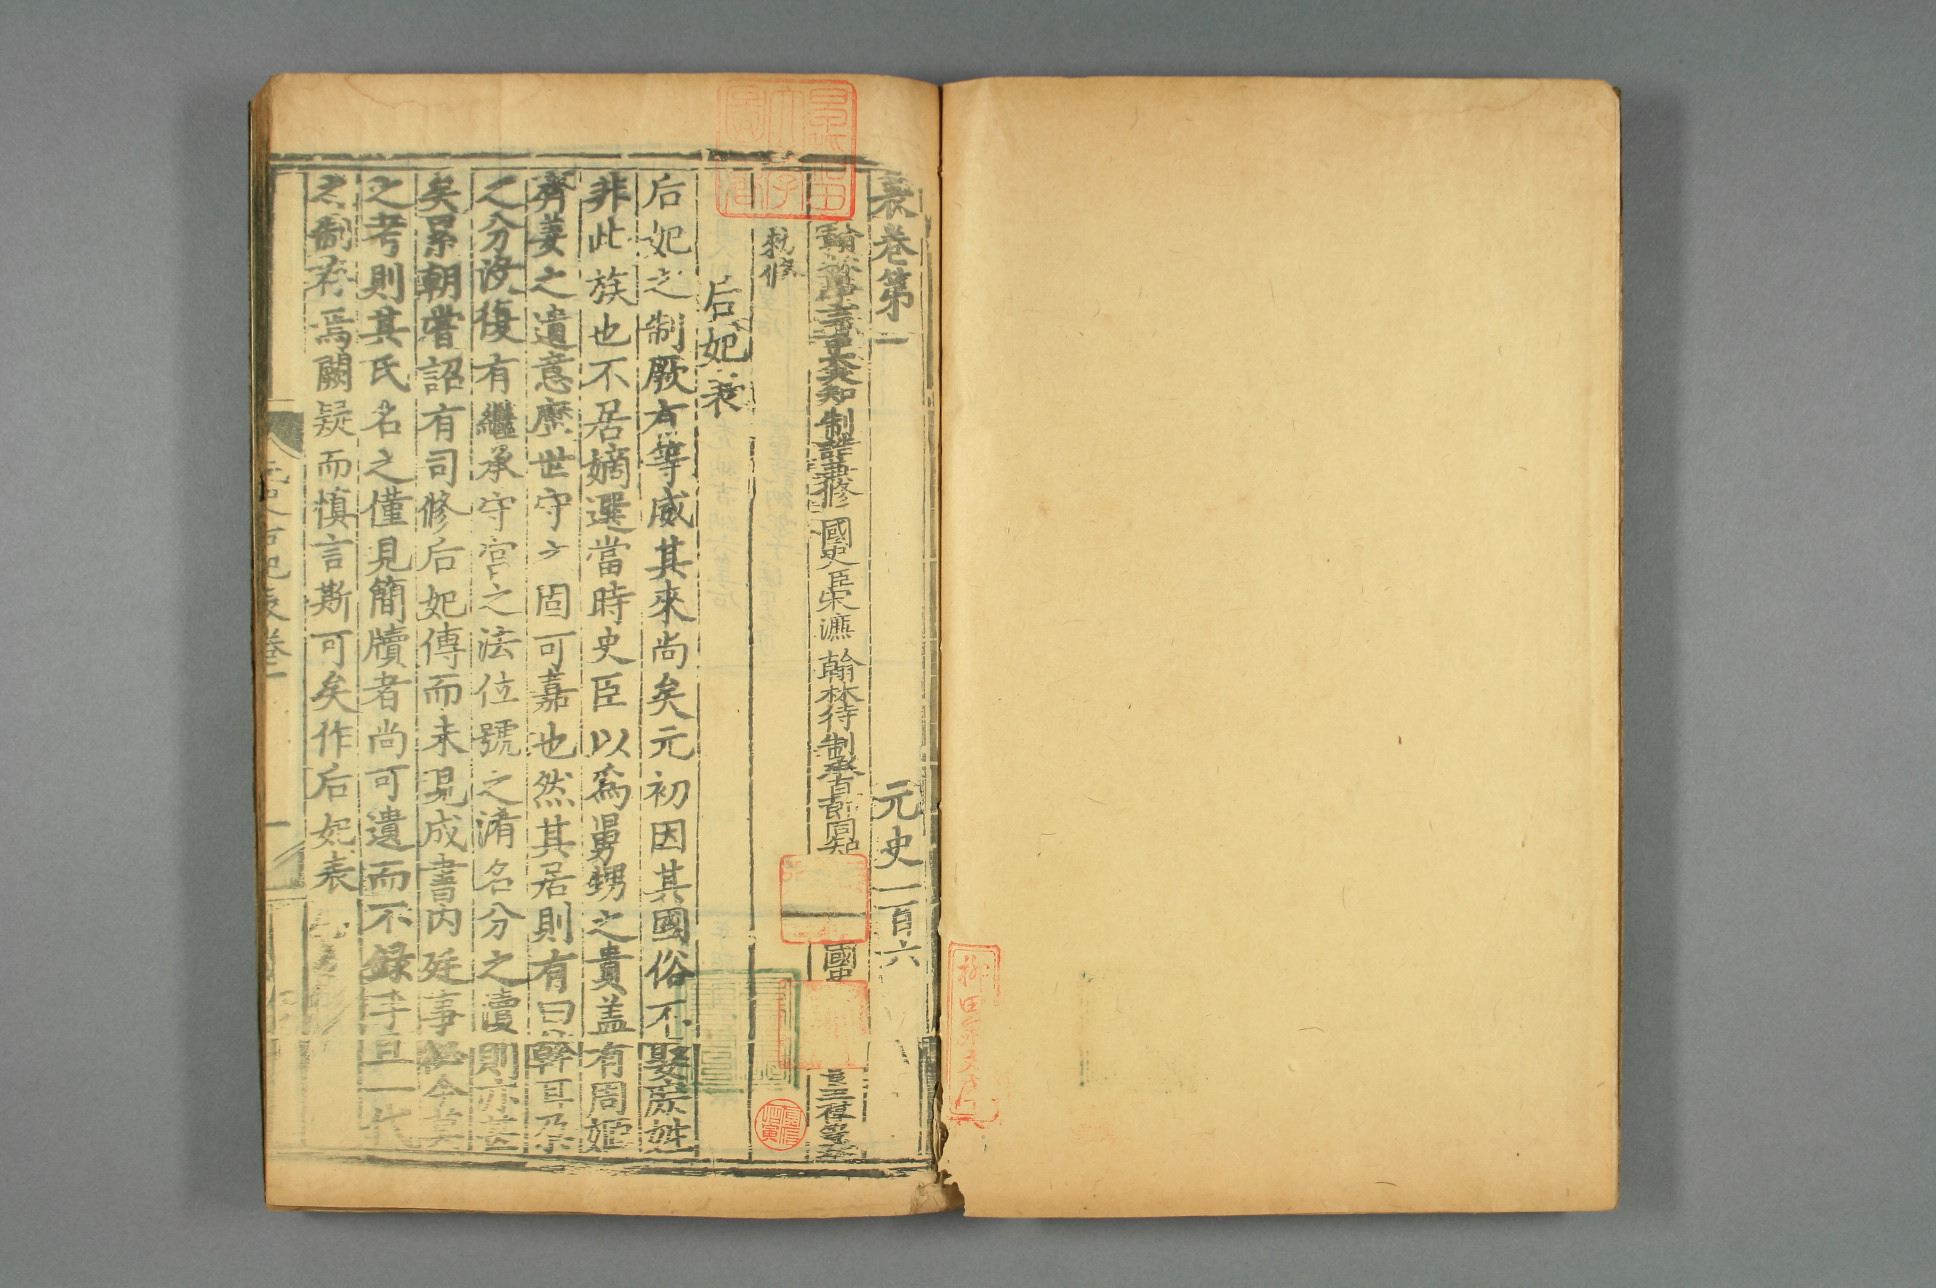 表卷第一　元史一百六
翰林學士亞中大夫知制誥兼修國史臣宋濂 翰林待制承直郎同知 國史 臣王禕等奉
敕修
后妃表
后妃之制厥有等威其來尚矣元初因其國俗不娶庶姓
非此族也不居嫡選當時史臣以為舅甥之貴盖有周姬
齊姜之遺意歷世守之固可嘉也然其居則有曰斡耳朶
之分没復有繼承守宮之法位號之淆名分之瀆則亦甚
矣累朝嘗詔有司修后妃傳而未見成書内廷事秘今莫
之考則其氏名之僅見簡牘者尚可遺而不録乎且一代
之制存焉闕疑而慎言斯可矣作后妃表
元史后妃表卷一
一